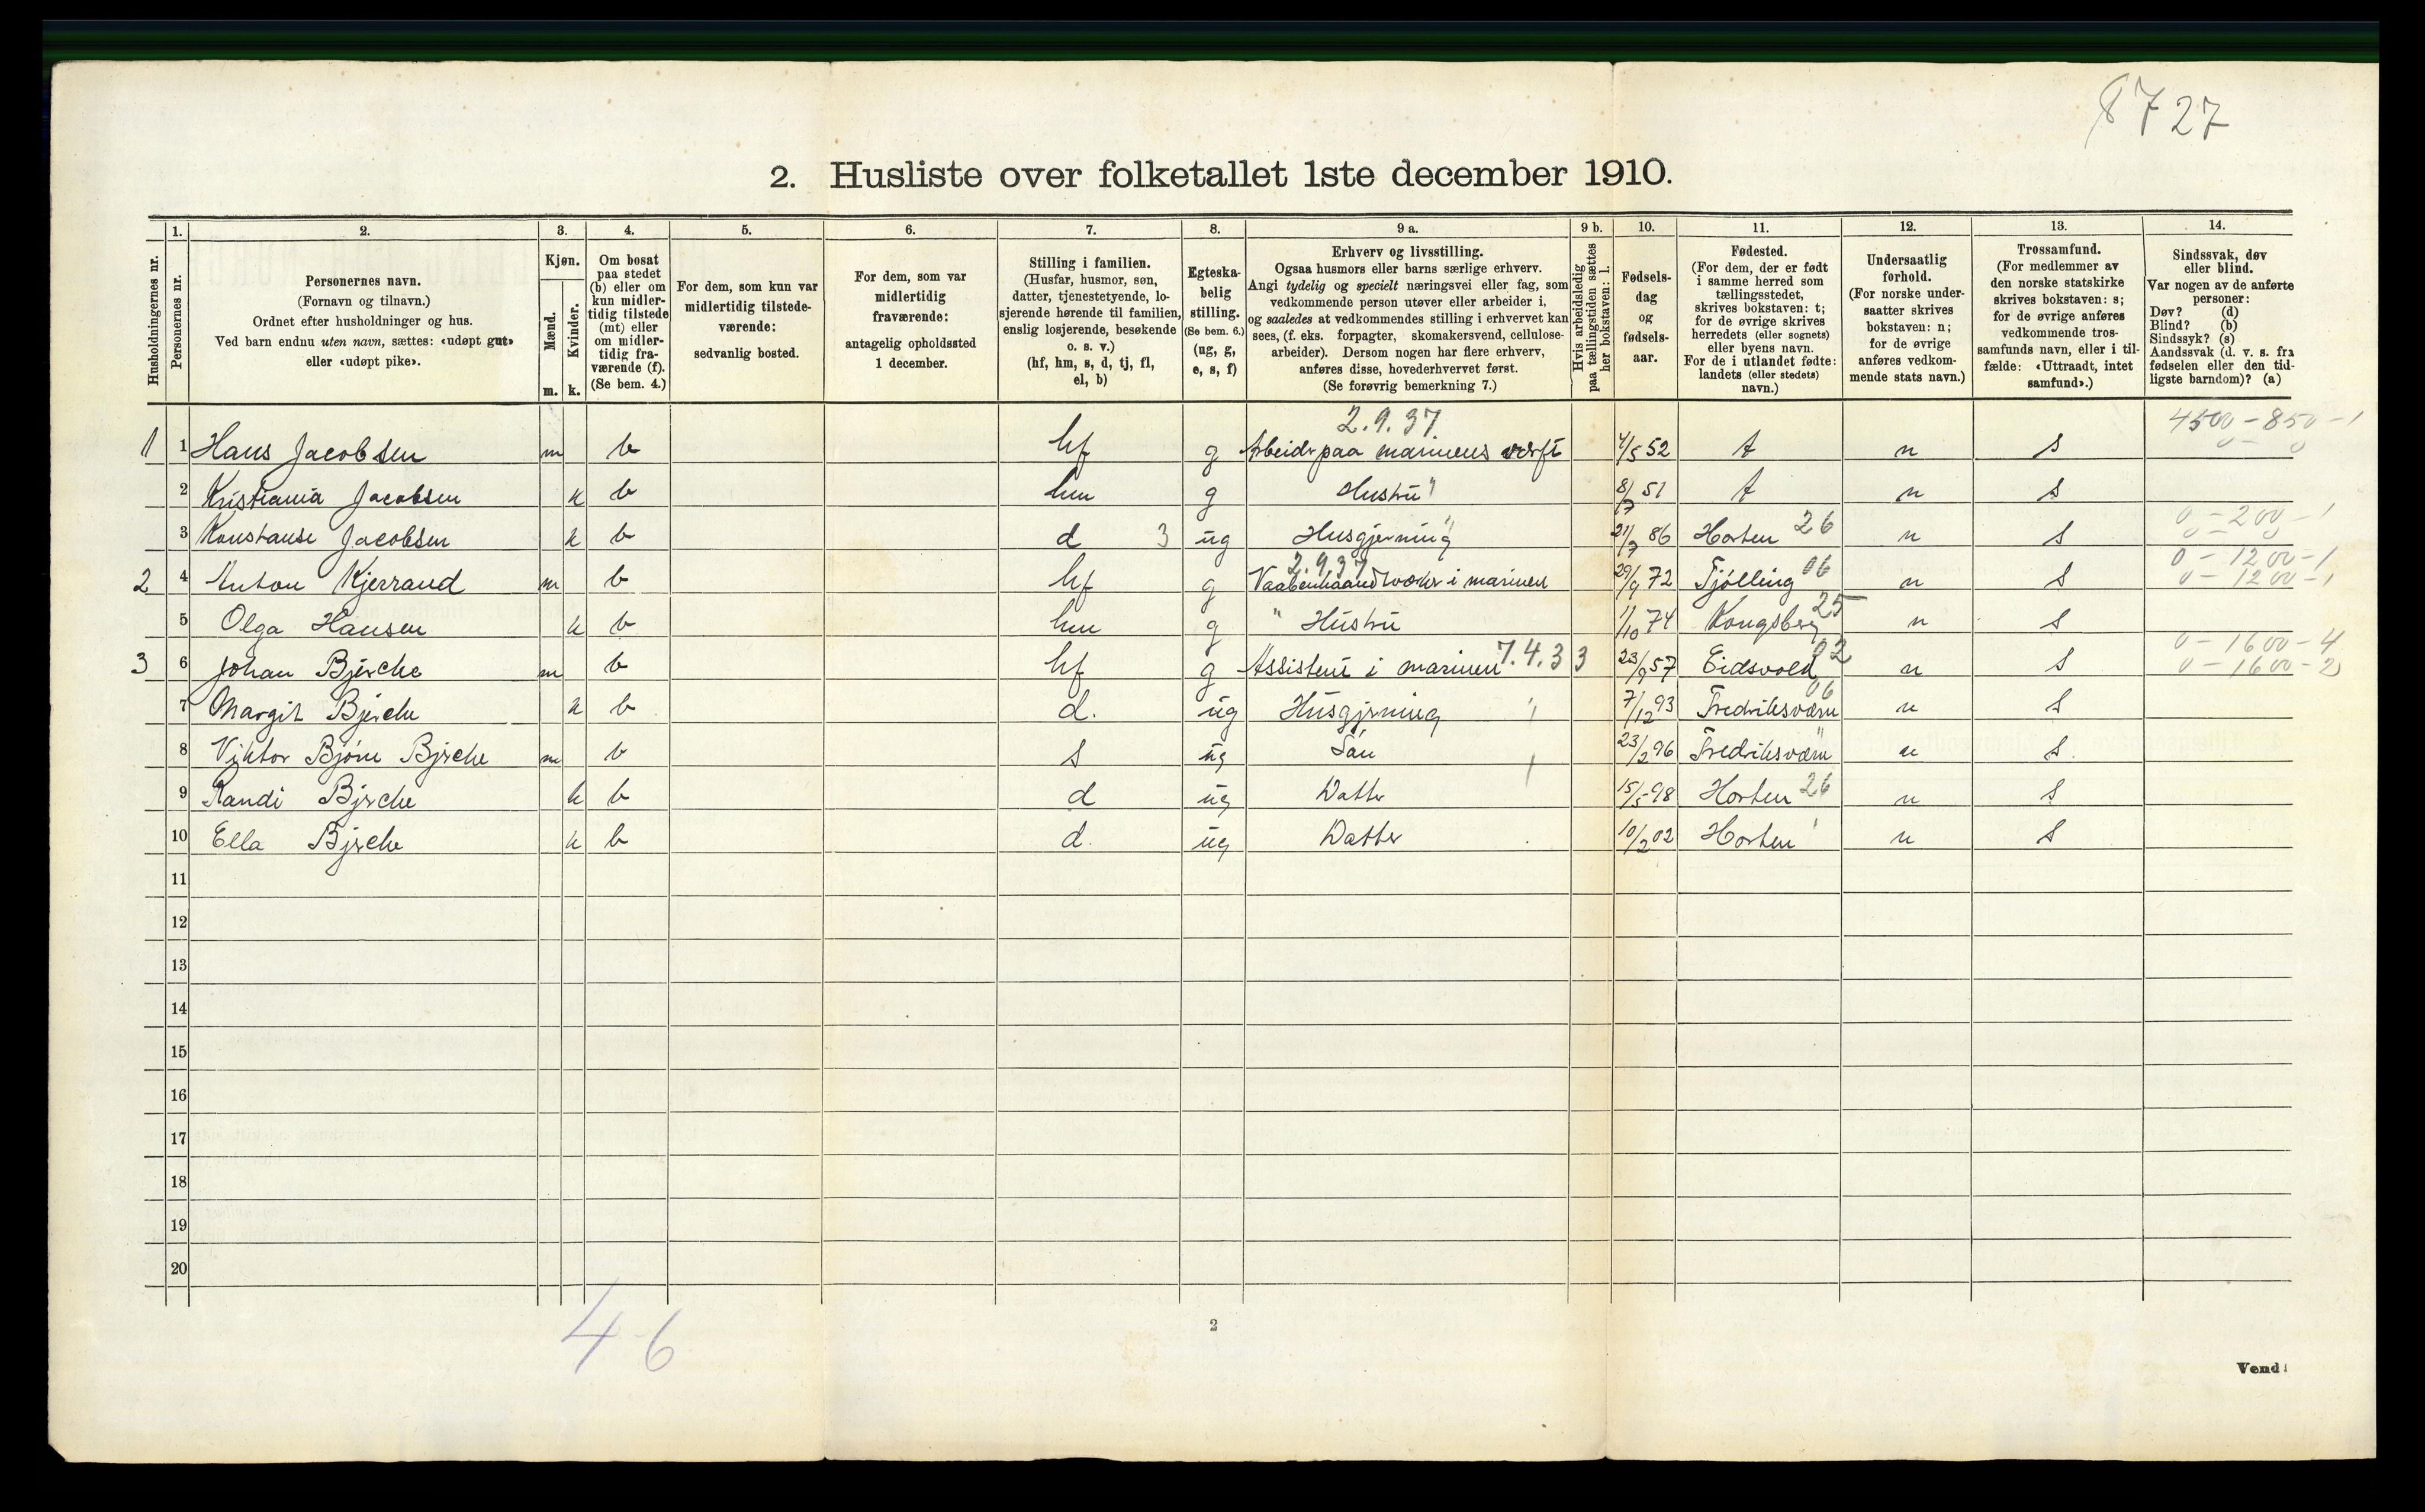 8727
2. Husliste over folketallet 1ste december 1910.
1. 2. 3. 4. 5. 6. 7. 8. 9 a. 9 b. 10. 11. 12. 13. 14.
Husholdningernes nr.
Personernes nr.
Personernes navn.
(Fornavn og tilnavn.)
Ordnet efter husholdninger og hus.
Ved barn endnu uten navn, sættes: «udøpt gut»
eller «udøpt pike».
Kjøn.
Mænd.
Kvinder.
m. k.
Om bosat
paa stedet
(b) eller om
kun midler-
tidig tilstede
(mt) eller
om midler-
tidig fra-
værende (f).
(Se bem. 4.)
For dem, som kun var
midlertidig tilstede-
værende:
sedvanlig bosted.
For dem, som var
midlertidig
fraværende:
antagelig opholdssted
1 december.
Stilling i familien.
(Husfar, husmor, søn,
datter, tjenestetyende, lo-
sjerende hørende til familien,
enslig losjerende, besøkende
o. s. v.)
(hf, hm, s, d, tj, fl,
el, b)
Egteska-
belig
stilling.
(Se bem. 6.)
(ug, g,
e, s, f)
Erhverv og livsstilling.
Ogsaa husmors eller barns særlige erhverv.
Angi tydelig og specielt næringsvei eller fag, som
vedkommende person utøver eller arbeider i,
og saaledes at vedkommendes stilling i erhvervet kan
sees, (f. eks. forpagter, skomakersvend, cellulose-
arbeider). Dersom nogen har flere erhverv,
anføres disse, hovederhvervet først.
(Se forøvrig bemerkning 7.)
Hvis arbeidsledig
paa tællingstiden sættes
her bokstaven: l.
Fødsels-
dag
og
fødsels-
aar.
Fødested.
(For dem, der er født
i samme herred som
tællingsstedet,
skrives bokstaven: t;
for de øvrige skrives
herredets (eller sognets)
eller byens navn.
For de i utlandet fødte:
landets (eller stedets)
navn.)
Undersaatlig
forhold.
(For norske under-
saatter skrives
bokstaven: n;
for de øvrige
anføres vedkom-
mende stats navn.)
Trossamfund.
(For medlemmer av
den norske statskirke
skrives bokstaven: s;
for de øvrige anføres
vedkommende tros-
samfunds navn, eller i til-
fælde: «Uttraadt, intet
samfund».)
Sindssvak, døv
eller blind.
Var nogen av de anførte
personer:
Døv? (d)
Blind? (b)
Sindssyk? (s)
Aandssvak (d. v. s. fra
fødselen eller den tid-
ligste barndom)? (a)
2.9.37 4500-850-1
1 1 Hans Jacobsen m b hf g Arbeidr paa marinens værft 4/5 52 t n s 0 - 0
2 Kristiania Jacobsen k b hm g Hustru " 8/7 51 t n s
0-200-1
3 Konstanse Jacobsen k b d 3 ug Husgjerning " 21/7 86 Horten 26 n s 0 - 0
2.9.37 0-1200-1
2 4 Anton Kjerrand m b hf g Vaabenhaandværker i marinen 29/9 72 Tjølling 06 n s 0-1200-1
5 Olga Hansen k b hm g " Hustru 1/10 74 Kongsberg 25 n s
0-1600-4
3 6 Johan Bjerche m b hf g Assistent i marinen 7.4.33 23/9 57 Eidsvold 02 n s 0-1600-2
7 Margit Bjerche k b d. ug Husgjerning " 7/12 93 Fredriksværn 06 n s
8 Viktor Bjørn Bjrche m b s ug Søn 23/2 96 Fredriksværn " n s.
9 Randi Bjrche k b d ug Datter 15/5-98 Horten 26 n s
10 Ella Bjrche k b d. ug Datter 10/2 02 Horten n s
11
12
13
14
15
16
17
18
19
20
4 6
2
Vend!